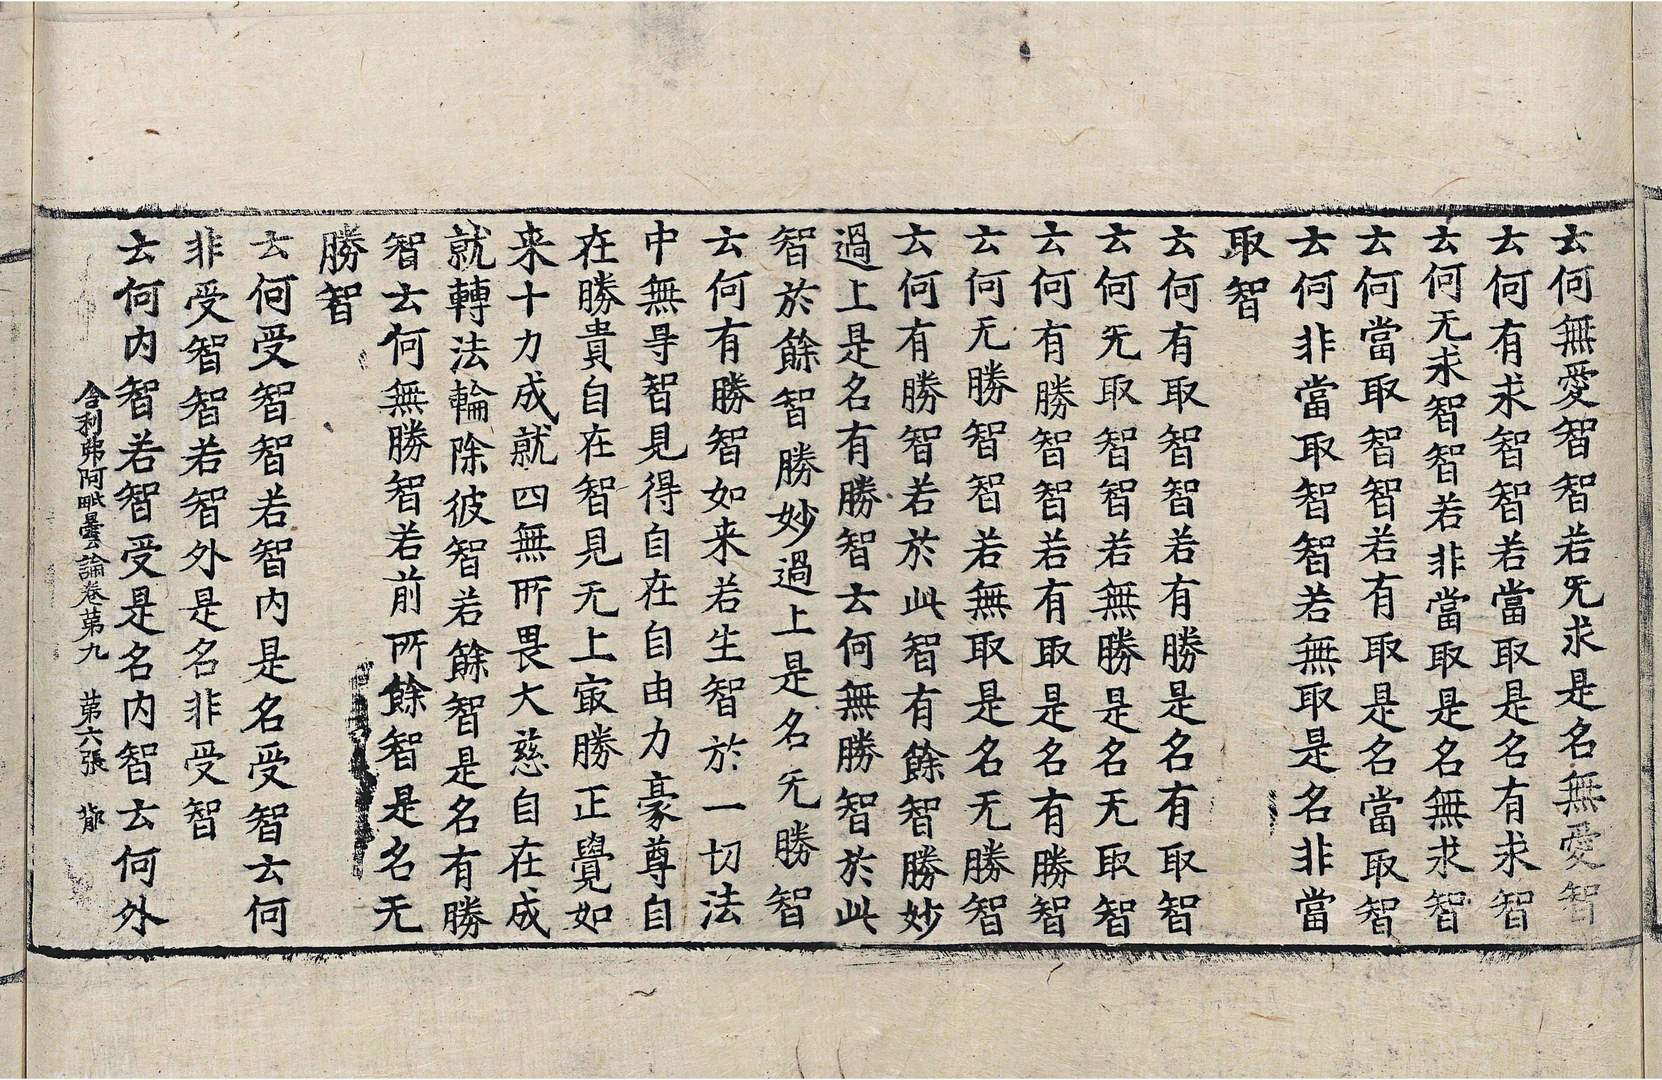 云何無愛智智若旡求是名無愛智
云何有求智智若當取是名有求智
云何无求智智若非當取是名無求智
云何當取智智若有取是名當取智
云何非當取智智若無取是名非當
取智
云何有取智智若有勝是名有取智
云何旡取智智若無勝是名无取智
云何有勝智智若有取是名有勝智
云何无勝智智若無取是名无勝智
云何有勝智若於此智有餘智勝妙
過上是名有勝智云何無勝智於此
智於餘智勝妙過上是名无勝智
云何有勝智如来若生智於一切法
中無㝵智見得自在自由力豪尊自
在勝貴自在智見无上㝡勝正覺如
来十力成就四無所畏大慈自在成
就轉法輪除彼智若餘智是名有勝
智云何無勝智若前所餘智是名无
勝智
云何受智智若智内是名受智云何
非受智智若智外是名非受智
云何内智若智受是名内智云何外
舍利弗阿毗曇論卷苐九 苐六張